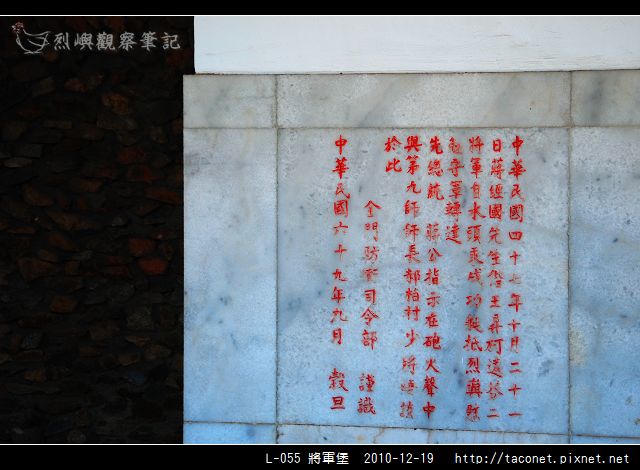 烈嶼觀察筆記
中華民國四十七年十月二十一
日蔣經國先生偕王昇柯遠芬二
將軍自水頭乘成功艇抵烈嶼慰
勉守軍轉達
先總統 蔣公指示在砲火聲中
與第九師師長郝柏村少將晤談
於此
金門防衛司令部 謹識
中華民國六十九年九月 穀旦
L-055 將軍堡 2010-12-19 http://taconet.pixnet.net